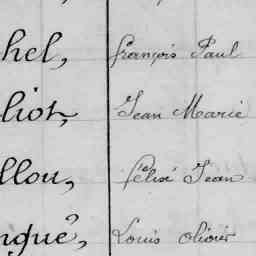 hel, françois Paul
liot, Jean Marie
llou, félix Jean
ngué, Louis olivier